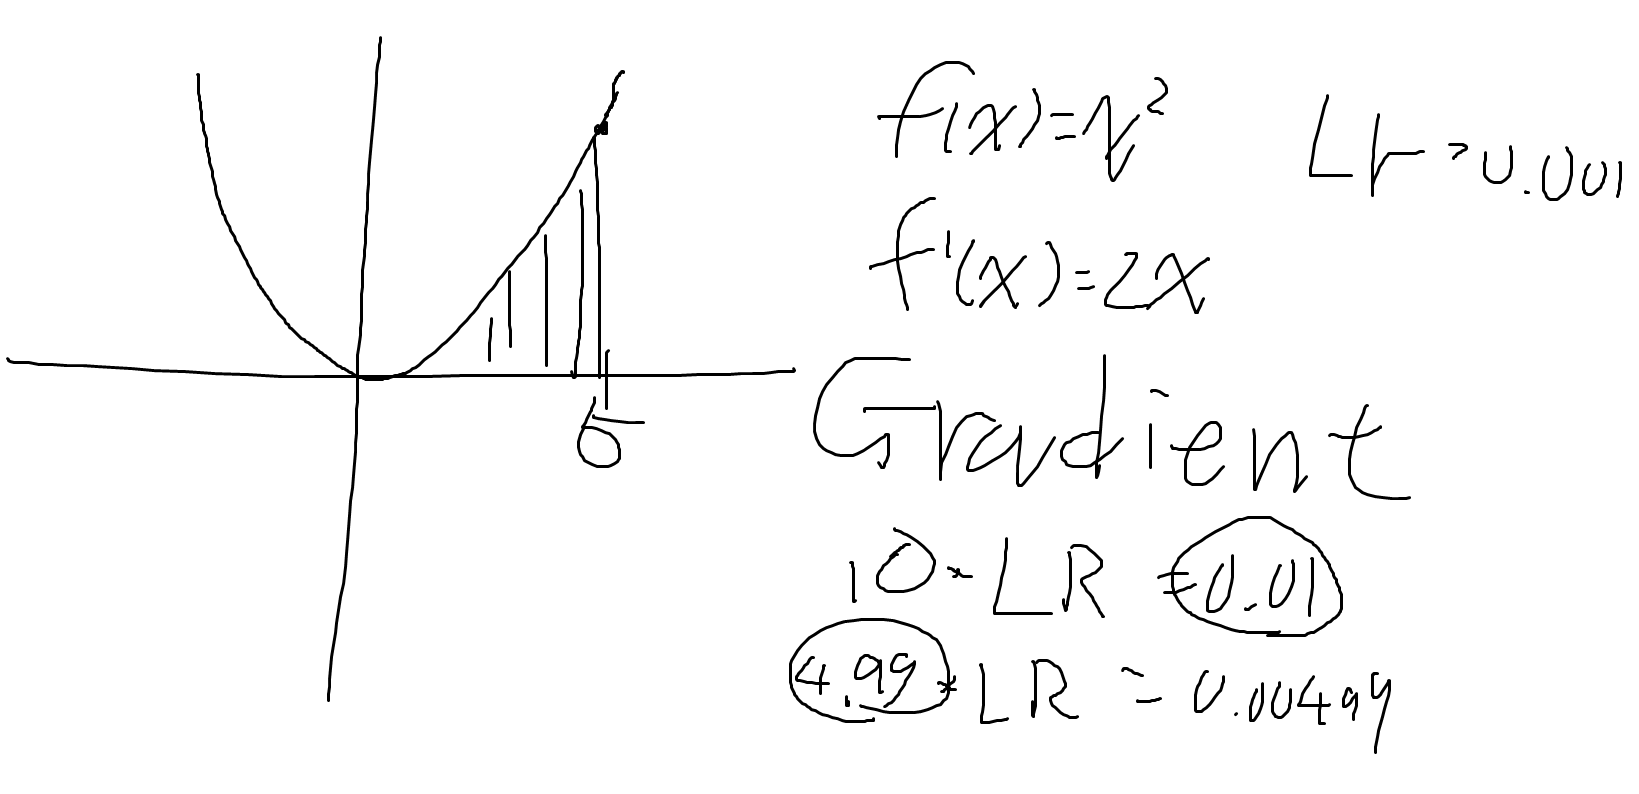 f(x)=x²
Lr=0.001
f'(x)=2x
5
Gradient
10*LR=0.01
4.99*LR=0.00499